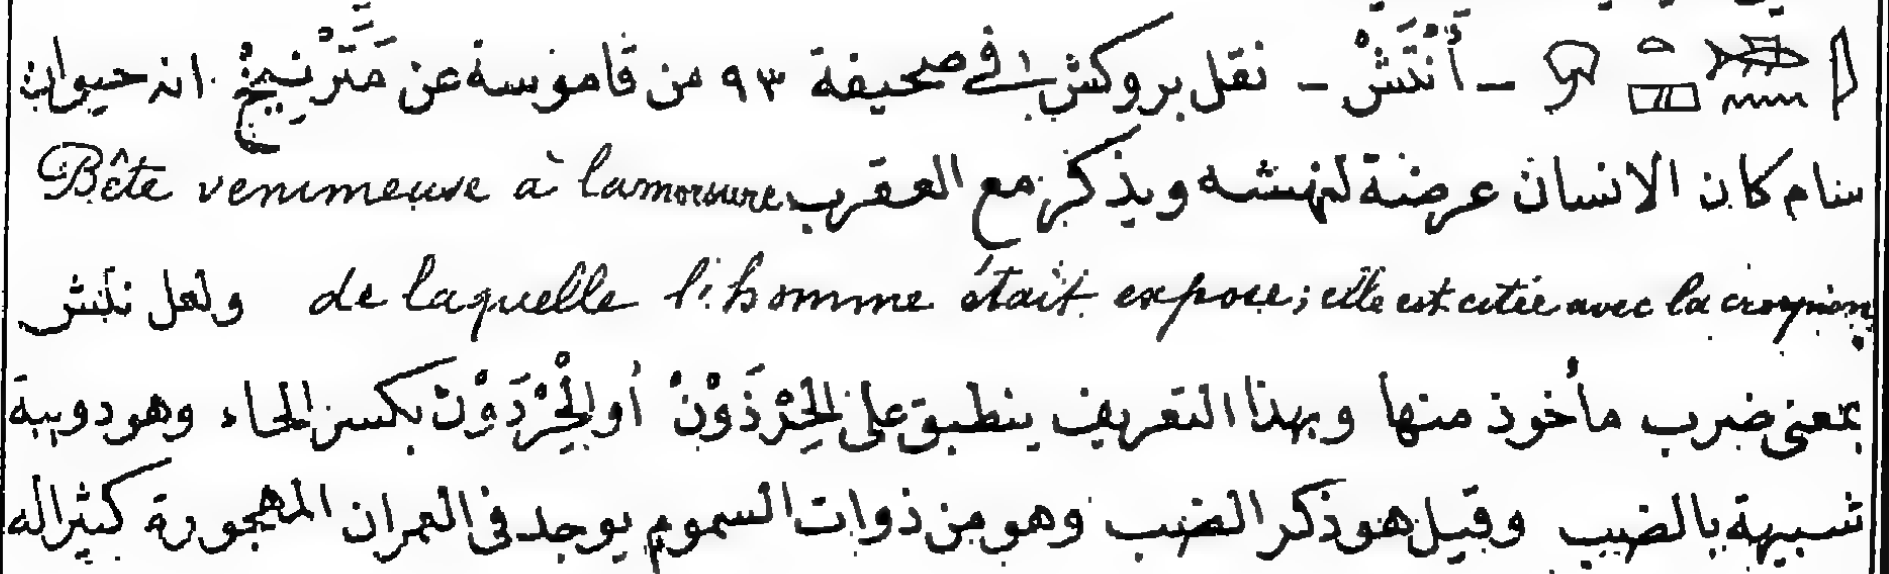 – أَنْتَشْ – نقل بروكش في صحيفة ٩٣ من قاموسة عن مَتَّرْنيخ انه حيوان
سام كان الانسان عرضة لنهشه ويذكر مع العقرب Bête venimeuse à la morsure
de laquelle l'homme était exposé; elle est citée avec la ولعل نتش
بمعنى ضرب مأخوذ منها وبهذا التعريف ينطبق على الحِرْذَوْنْ أو الحِرْدَوْنْ بكسر الحاء وهو دويبة
شبيهة بالضب وقيل هو ذكر الضب وهو من ذوات السموم يوجد في العمران المهجورة كثيرا له